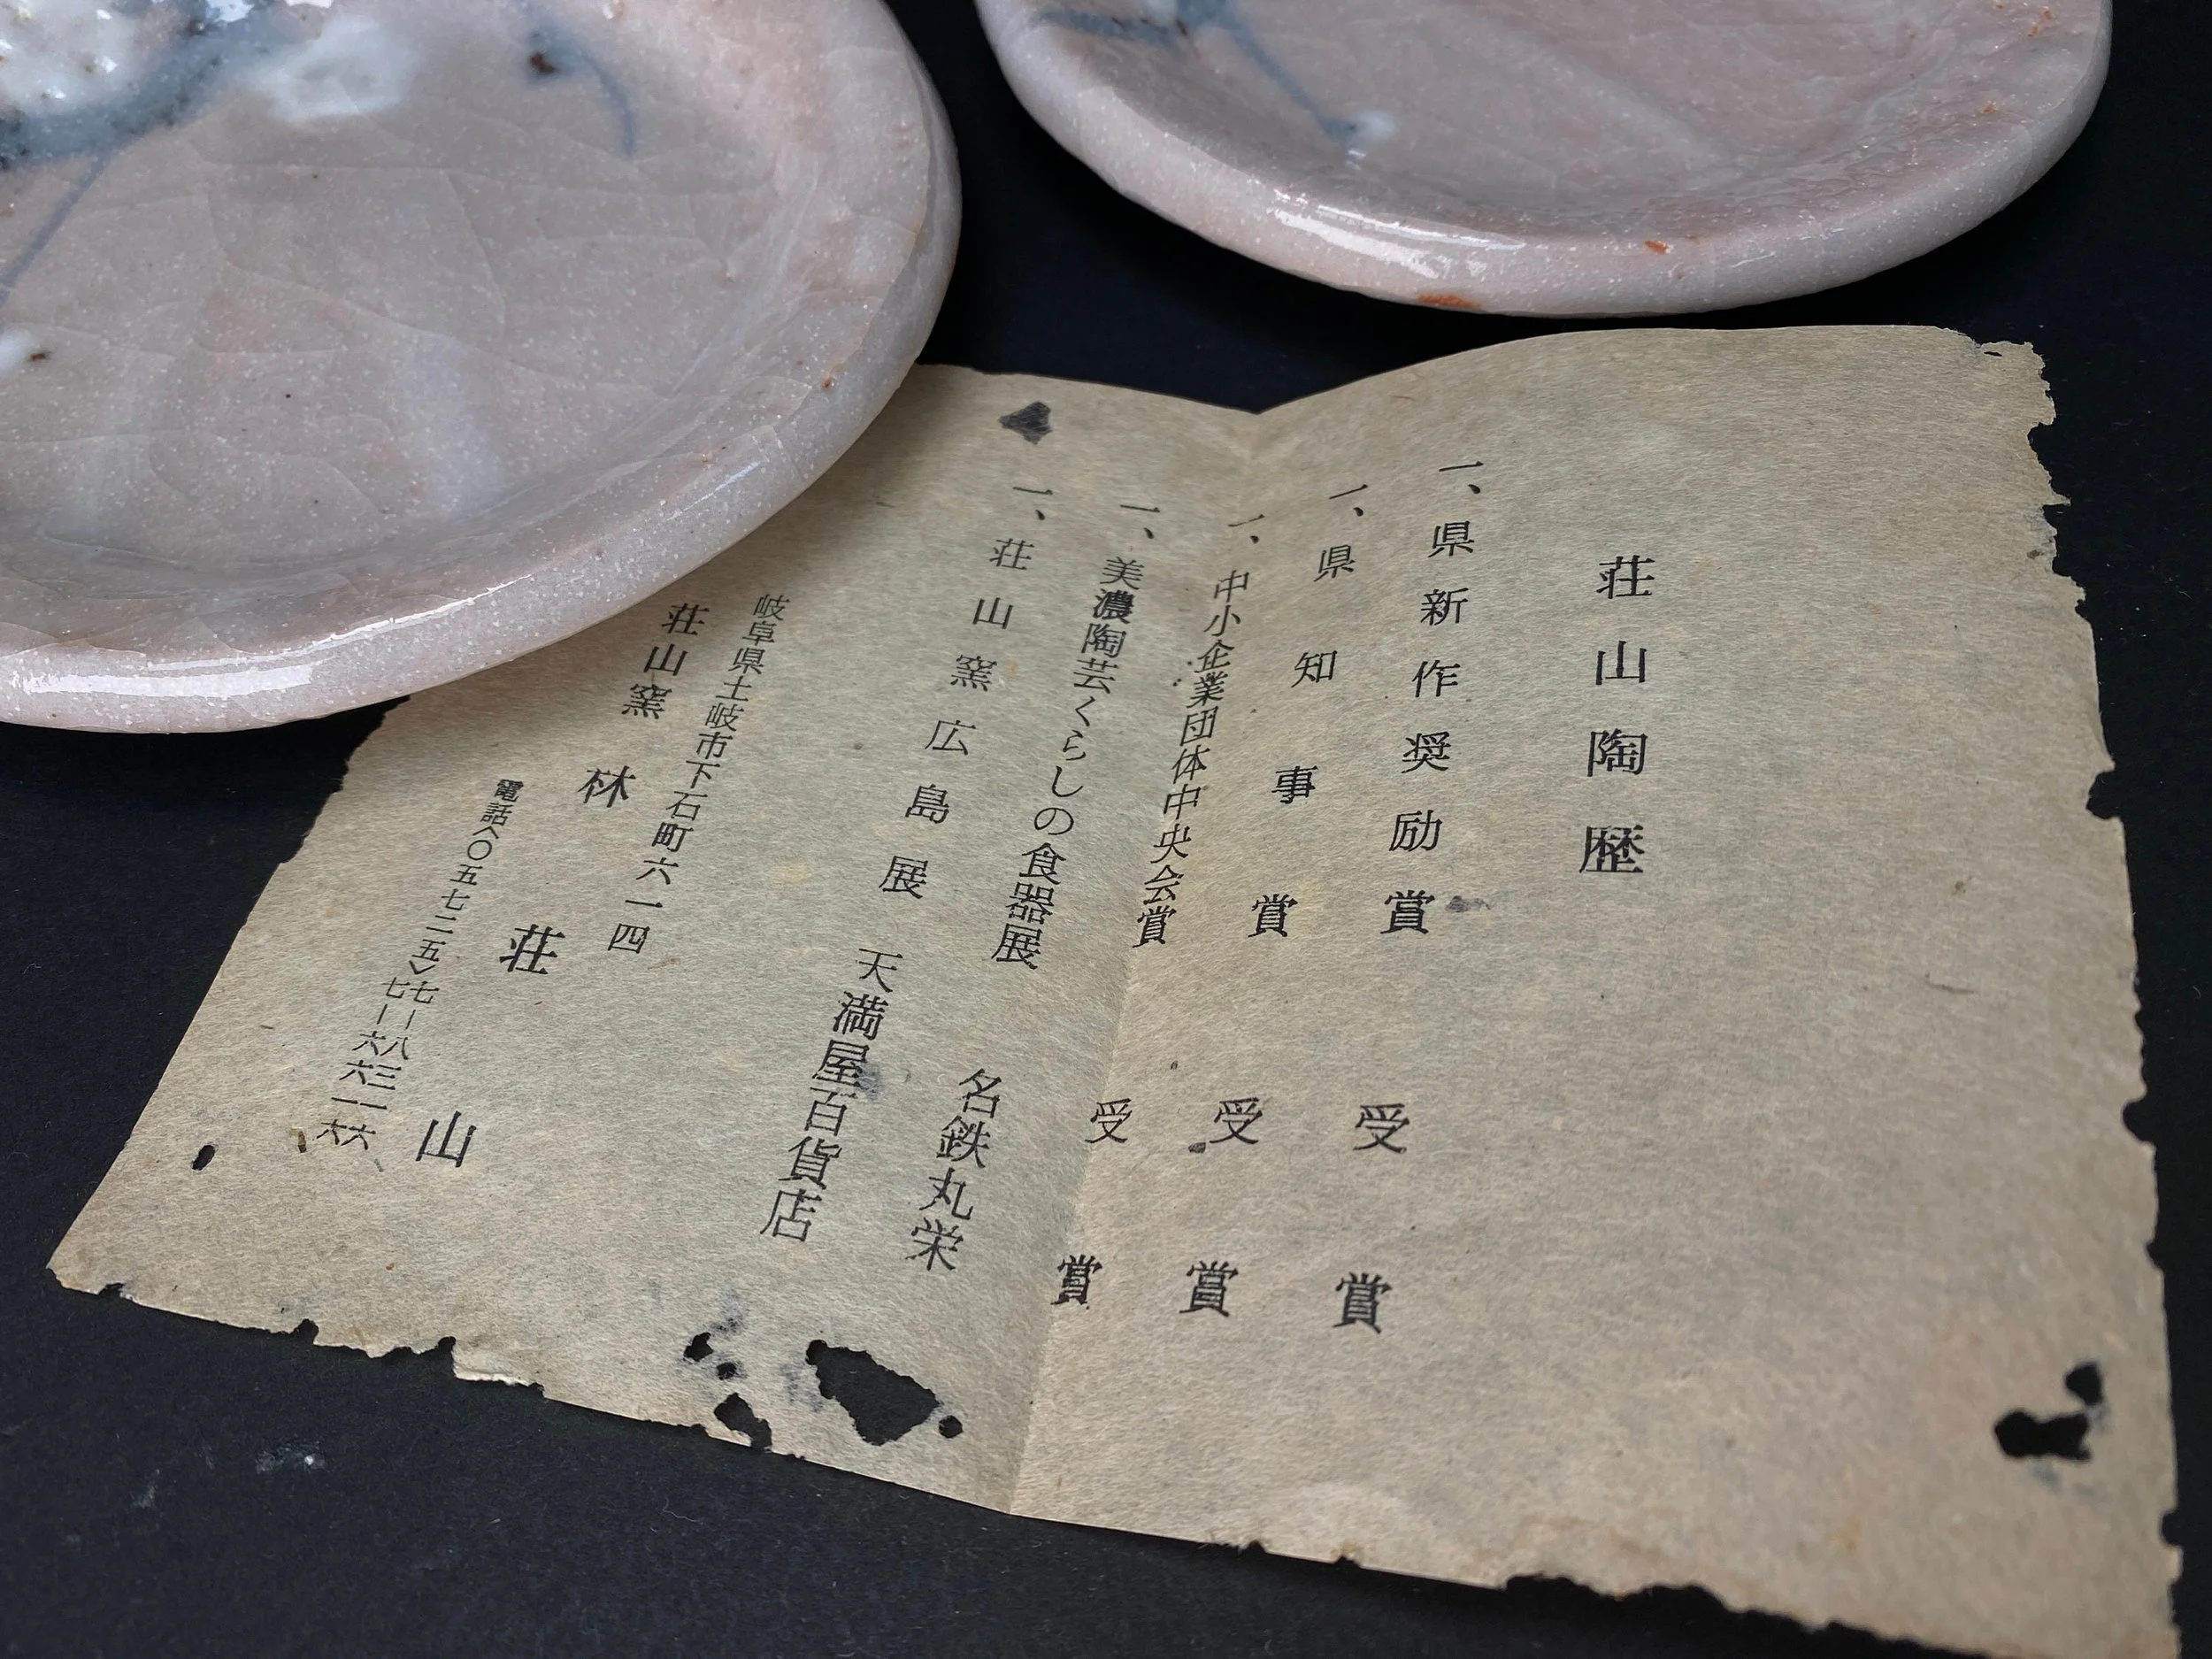 荘山陶歴
一、県新作奨励賞　受賞
一、県知事賞　受賞
一、中小企業団体中央会賞　受賞
一、美濃陶芸くらしの食器展　名鉄丸栄
一、荘山窯広島展　天満屋百貨店
岐阜県土岐市下石町六一四
荘山窯　林荘山
電話〈〇五七二五〉七―八三一六
七―六六一六